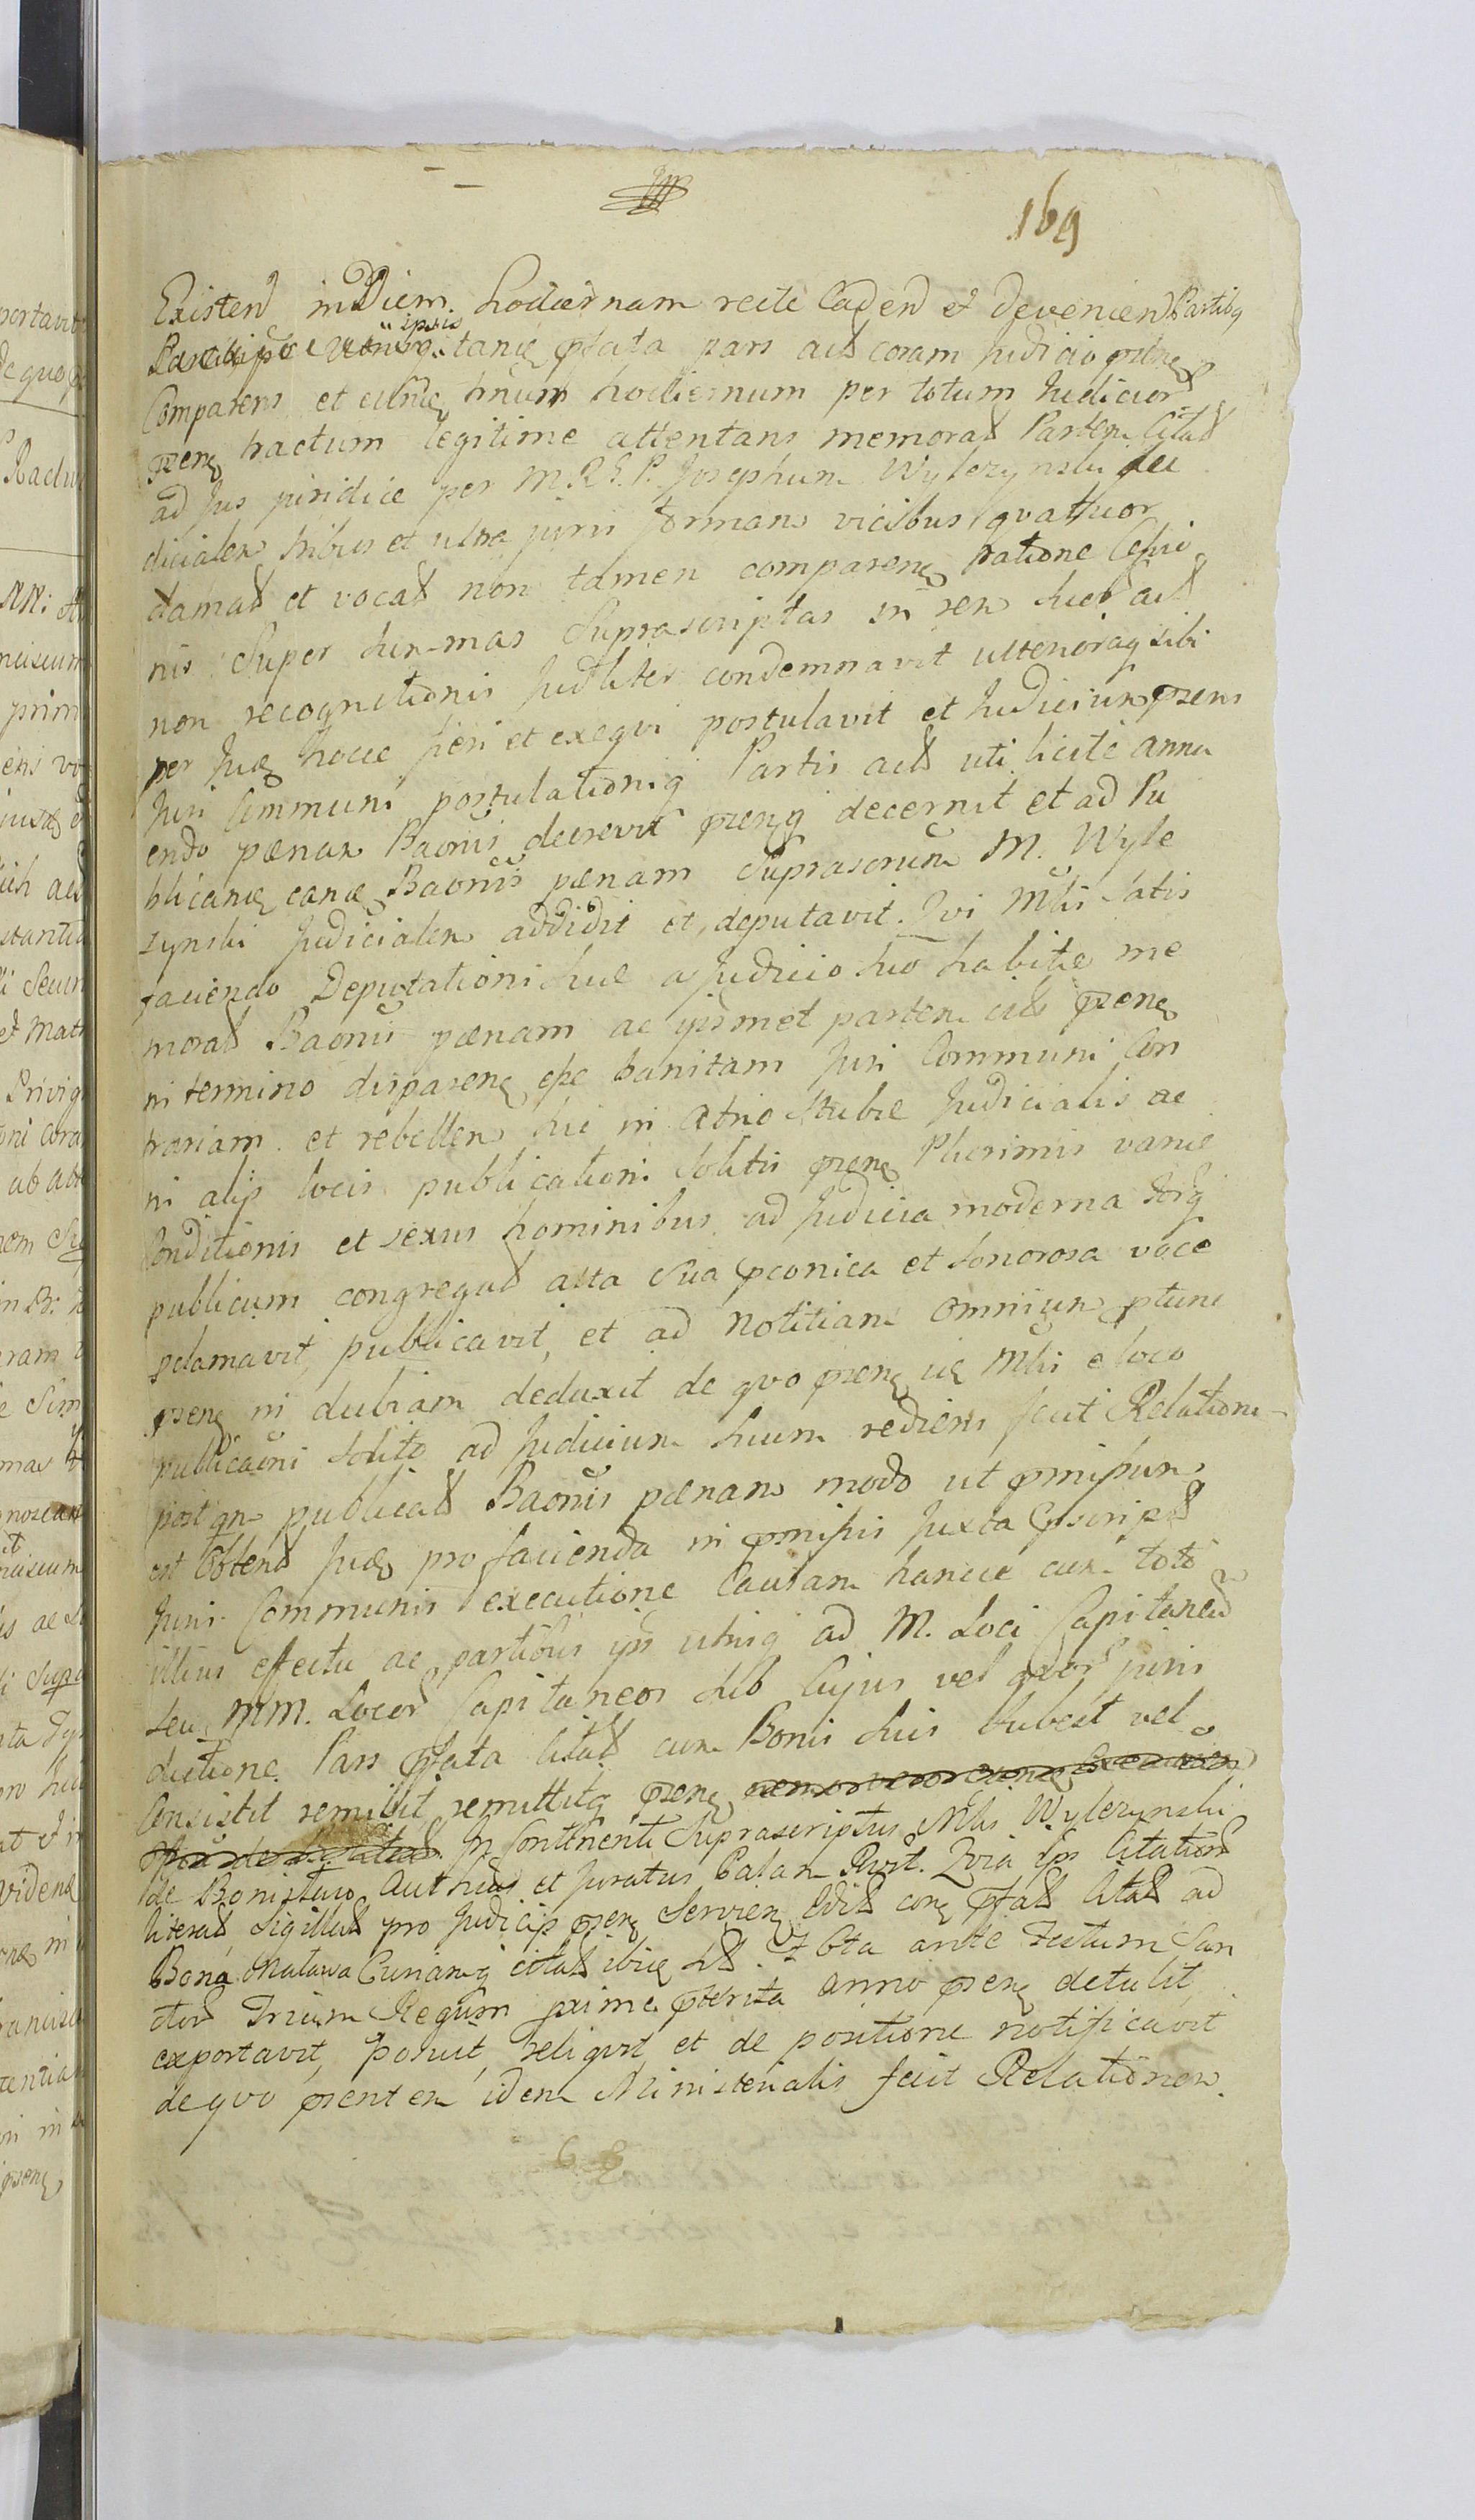 169
Existend in Diem hodiernam recte Cadend et devenien Partibq
ipsis tanq pfata pars actd coram Judicio prnq
Comparens et eundq trnum hodiernum per totum Judicior
prnq tractum legitime attentans memorad Partem Citad
ad Jus juridice per M.R.G.P. Josephum Wylezynski Ju
dicialem tribus et ultra juris formam vicibus quatuor
clamad et vocad non tamen comparenq ratione Cessio
nis Super sum-mas Suprascriptas in rem sued actd
non recognitionis Judliter condemnavit ulterioraq sibi
per Judq hocce fieri et exeqvi postulavit et Judicium prns
Juri Communi postulationiq Partis actd uti licite annu
endo pænam Baonis decrevit prnq decernit et ad Pu
blicandq eandq Baonis pænam Suprascrum M. Wyle
zynski Judicialem addidit et deputavit. Qvi Mlis satis
faciendo Deputationi suæ a Judicio suo habitæ me
morad Baonis pænam ac ipsmet partem citd prnq
in termino disparenq esse banitam Juri Communi Con
trariam et rebellem hic in atrio Stubæ Judicialis ac
in alijs locis publicationi Solitis prnq Plurimis variæ
Conditionis et sexus hominibus ad Judicia moderna forq
publicum congregad alta Sua pconica et Sonorosa voce
pclamavit, publicavit, et ad notitiam omnium ptune
prnq in dubiam deduxit de qvo prnq idq Mlis e loco
publicaoni Solito ad Judicium suum rediens fecit Relatione-
post qm publicad Baonis pænam modo ut pmissum
est obtend Judq pro facienda in pmissis Juxta Pscripd
Juris Communis executione Causam hancce cum toto
illius effectu ac partibus ips utrisq ad M. Loci Capitaneud
seu MM. Locor Capitaneos sub Cujus vel qvor juris
dictione Pars pfata Citad cum Bonis suis subest vel
Consistit remisit remittitq prnq
In Continenti Suprascriptus Mlis Wylezynski
de Bonislaw Authus et Juratus Palam Rvit. Qvia ips Citationd
literad Sigillad pro Judicijs prnq Servien Edid conq pfad Citad ad
Bona Malawa Cunarq citad ibiq hd. Sbbta ante Festum San
ctor Trium Regum pxime pterita anno prnq detulit
exportavit, posuit reliqvit et de positione notificavit
de qvo prnten idem Ministerialis fecit Relationem.